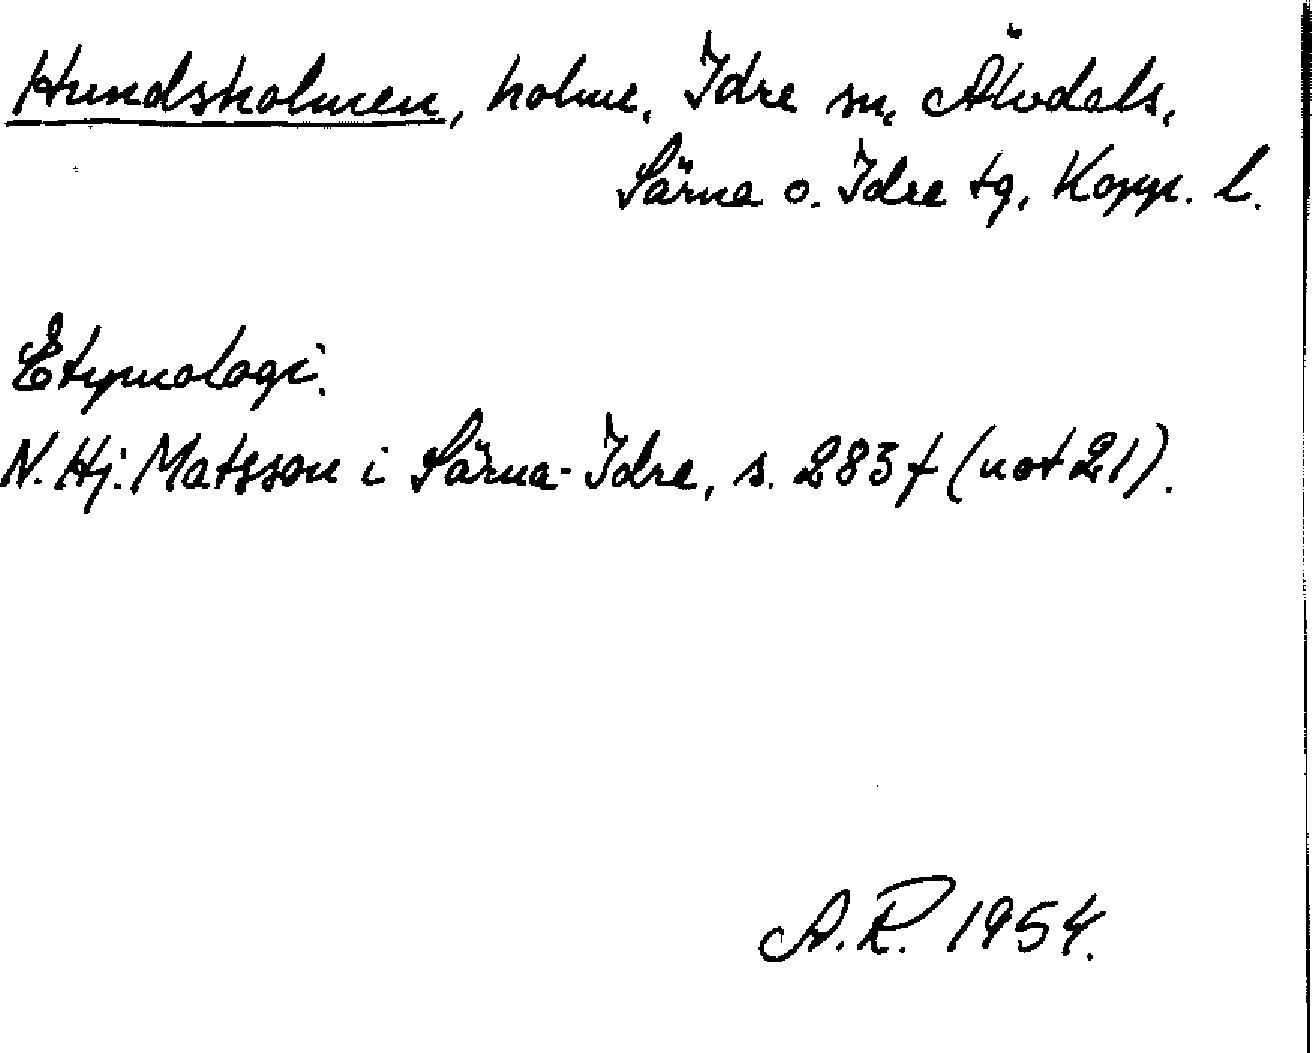 Hundsholmen, holme, Idre sn, Älvdals,
Särna o. Idre tg, Kopp. l.
Etymologi.
N. Hj. Matsson i Särna-Idre, s. 283 f (not 21).
A.R. 1954.